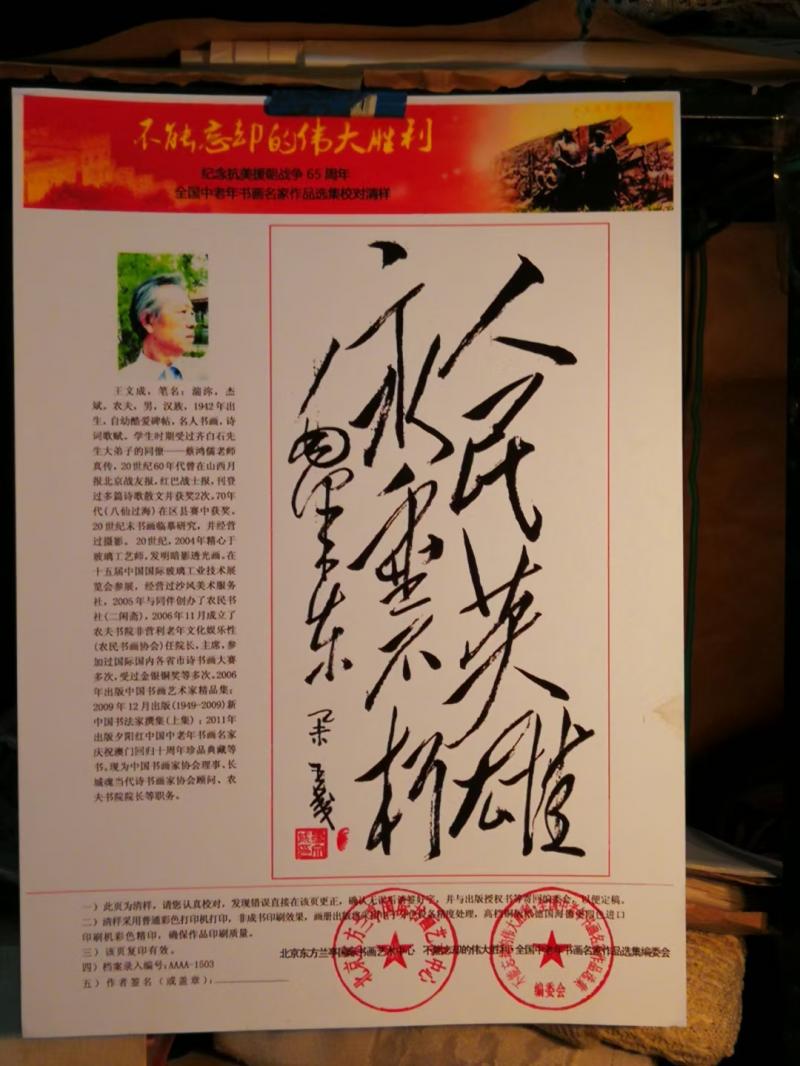 不能忘却的伟大胜利
纪念抗美援朝战争65周年
全国中老年书画名家作品选集校对清样
人民英雄
永垂不朽
毛泽东
王文成，笔名：瀛洂，杰
斌，农夫，男，汉族，1942年出
生，自幼酷爱碑帖，名人书画，诗
词歌赋。学生时期受过齐白石先
生大弟子的同僚——蔡鸿儒老师
真传，20世纪60年代曾在山西月
报北京战友报，红巴战士报，刊登
过多篇诗歌散文并获奖2次，70年
代(八仙过海)在区县赛中获奖。
20世纪末书画临摹研究，并经营
过摄影。 20世纪，2004年精心于
玻璃工艺师，发明暗影透光画。在
十五届中国国际玻璃工业技术展
览会参展，经营过沙风美术服务
社，2005年与同伴创办了农民书
社(二闲斋)，2006年11月成立了
农夫书院非营利老年文化娱乐性
(农民书画协会)任院长，主席，参
加过国际国内各省市诗书画大赛
多次，受过金银铜奖等多次。2006
年出版中国书画艺术家精品集；
2009年12月出版(1949-2009)新
中国书法家撰集(上集)；2011年
出版夕阳红中国中老年书画名家
庆祝澳门回归十周年珍品典藏等
书。现为中国书画家协会理事、长
城魂当代诗书画家协会顾问、农
夫书院院长等职务。
一）此页为清样，请您认真校对，发现错误直接在该页更正，确认无误后请签好字，并与出版授权书等寄回编委会，以便定稿。
二）清样采用普通彩色打印机打印，非成书印刷效果，画册出版
印刷机彩色精印，确保作品印刷质量。
三）该页复印有效。
四）档案录入编号：AAAA-1503
五）作者签名（或盖章）：
北京东方兰亭国际书画艺术中心 不能忘却的伟大胜利·全国中老年书画名家作品选集编委会
编委会